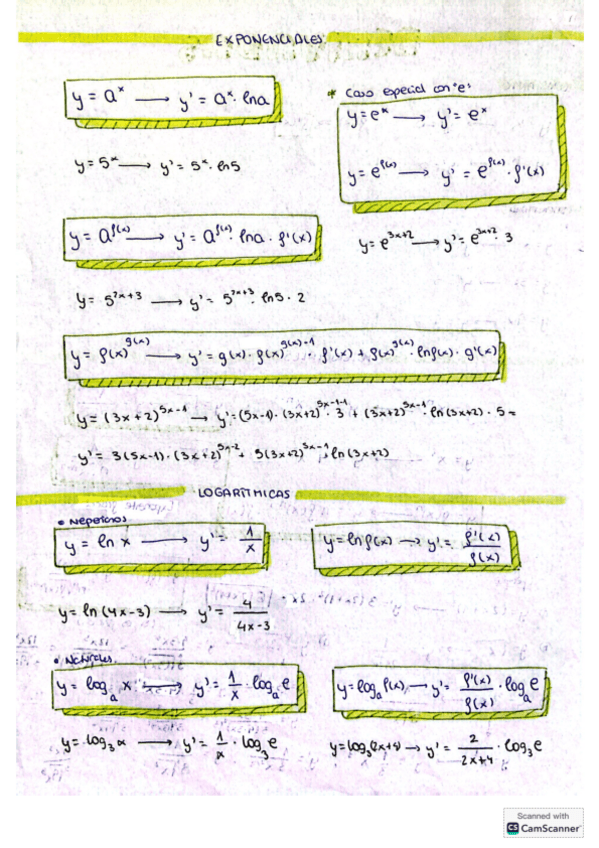 EXPONENCIALES
y = a^x → y' = a^x · lna
y = 5^x → y' = 5^x · ln5
* Caso especial con "e"
y = e^x → y' = e^x
y = e^f(x) → y' = e^f(x) · f'(x)
y = a^f(x) → y' = a^f(x) · lna · f'(x)
y = e^3x+2 → y' = e^3x+2 · 3
y = 5^2x+3 → y' = 5^2x+3 · ln5 · 2
y = f(x)^g(x) → y' = g(x) · f(x)^g(x)-1 · f'(x) + f(x)^g(x) · lnf(x) · g'(x)
y = (3x+2)^5x-1 → y' = (5x-1) · (3x+2)^5x-1-1 · 3 + (3x+2)^5x-1 · ln(3x+2) · 5 =
y' = 3(5x-1) · (3x+2)^5x-2 + 5(3x+2)^5x-1 · ln(3x+2)
LOGARÍTMICAS
• Neperianos
y = ln x → y' = 1/x
y = ln f(x) → y' = f'(x)/f(x)
y = ln(4x-3) → y' = 4/4x-3
y = log_a x → y' = 1/x · log_a e
y = log_a f(x) → y' = f'(x)/f(x) · log_a e
y = log_3 x → y' = 1/x · log_3 e
y = log_3(2x+4) → y' = 2/2x+4 · log_3 e
Scanned with
CS CamScanner